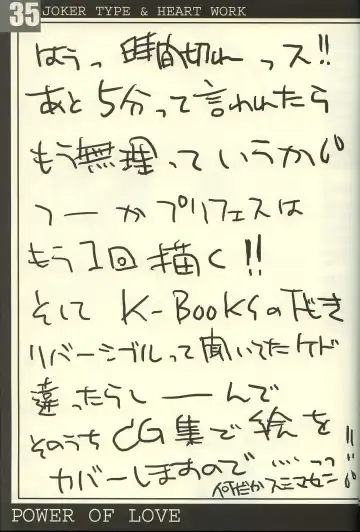 35 JOKER TYPE & HEART WORK
はうっ 時間切れ っス!!
あと5分って言われたら
もう無理っていうかい
つーかプリフェスは
もう1回描く!!
そして K-BooKSの下む
リバーシブルって聞いてたケド
違ったらしーんで
そのうちCG集で絵を
カバーしますので‥‥っっ!!
何だかスミマセンー
POWER OF LOVE